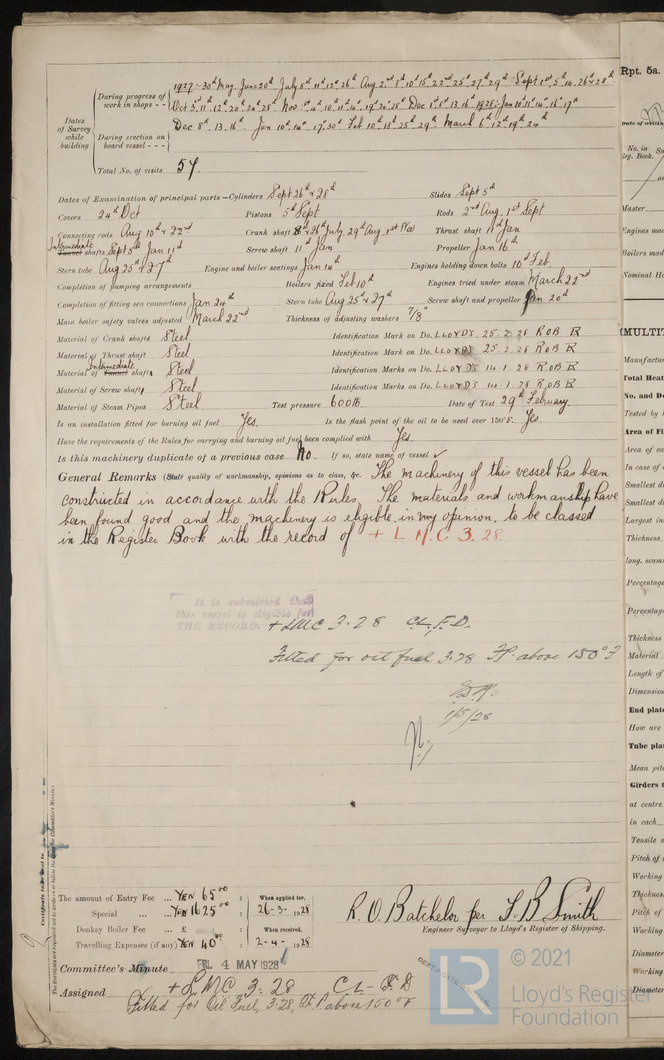 1927-30th May. June 20th July 8th 11th 12th 26th Aug 2nd 8th 10th 15th 22nd 25th 27th 29th Sept 1st 5th 14. 26th & 28th
During progress of work in shops - -
Oct 5. 11th 12th 20th 24th 28th Nov 1st 4th 10th 11th 14th 19th 24th 28th Dec 1st 8th 13. 16 1928: Jan 10th 11th 14th 16th 17th
Dates of Survey while building
During erection on board vessel - - -
Dec 8th 13. 16th. Jan 10th 14th 17. 30th Feb 10th 18th 25th 29th March 6th 12th 19th 24th
Total No. of visits 54
Dates of Examination of principal parts—Cylinders Sept 26th & 28th Slides Sept 5th
Covers 24th Oct Pistons 5th Sept Rods 2nd Aug. 1st Sept
Connecting rods Aug 10th & 22nd Crank shaft 8th & 26th July, 29th Aug, 1st Nov Thrust shaft 11th Jan
Intermediate
Tunnel shafts Sept 5th Jan 11th Screw shaft 11th Jan Propeller Jan 16th
Stern tube Aug 25th & 27th Engine and boiler seatings Jan 14th Engines holding down bolts 10th Feb.
Completion of pumping arrangements Boilers fixed Feb 10th Engines tried under steam March 22nd
Completion of fitting sea connections Jan 24th Stern tube Aug 25 & 27th Screw shaft and propeller Jan 20th
Main boiler safety valves adjusted March 22nd Thickness of adjusting washers 7/8"
Material of Crank shafts Steel Identification Mark on Do. LLOYD'S. 25.2.28 ROB LR
Material of Thrust shaft Steel Identification Mark on Do. LLOYD'S 25.2.28 ROB LR
Intermediate
Material of Tunnel shafts Steel Identification Marks on Do. LLOYD'S 14.1.28 ROB LR
Material of Screw shafts Steel Identification Marks on Do. LLOYD'S 14.1.28 ROB LR
Material of Steam Pipes Steel Test pressure 600 lb. Date of Test 29th February
Is an installation fitted for burning oil fuel Yes. Is the flash point of the oil to be used over 150°F. Yes.
Have the requirements of the Rules for carrying and burning oil fuel been complied with Yes.
Is this machinery duplicate of a previous case No. If so, state name of vessel ✓
General Remarks (State quality of workmanship, opinions as to class, &c. The machinery of this vessel has been
constructed in accordance with the Rules. The materials and workmanship have
been found good and the machinery is eligible, in my opinion, to be classed
in the Register Book with the record of + L.M.C 3.28.
It is submitted that
this vessel is eligible for
THE RECORD. + LMC 3.28 CL. F.D.
Fitted for oil fuel 3.28 F.P. above 150°F
1/5/28
Certificate to be sent to
The amount of Entry Fee ... YEN 65.00 : When applied for,
Special ... YEN 1625.00 : 26-3-1928
Donkey Boiler Fee ... £ : When received,
Travelling Expenses (if any) YEN 40.00 : 2-4-1928
R. O. Batchelor for S B Smith
Engineer Surveyor to Lloyd's Register of Shipping.
Committee's Minute FRI. 4 MAY 1928
Assigned + LMC 3.28 CL - F.D
Fitted for Oil Fuel, 3.28, F.P. above 150°F
CERTIFICATE WRITTEN
LR
© 2021
Lloyd's Register
Foundation
Rpt. 5a.
Date of writing
No. in
Reg. Book.
Master
Engines made
Boilers made
Nominal Ho
MULTI
Manufactu
Total Heat
No. and De
Tested by
Area of Fi
Area of ea
In case of
Smallest d
Smallest d
Largest in
Thickness
long. seams
Percentage
Percentage
Thickness
Material
Length of
Dimension
End plate
How are
Tube plat
Mean pitc
Girders t
at centre
in each
Tensile s
Pitch of
Working
Thickness
Pitch of
Working
Diameter
Working
Diameter